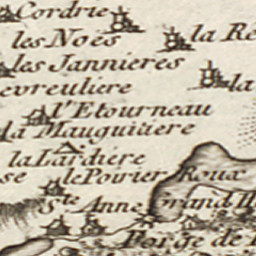 Cordrie
les Noës
la Ré
les Jannieres
la
evreuliere
l'Etourneau
la Mauguitiere
la Lardiere
se le Poirier Roux
Ste Anne grand H
Forge de